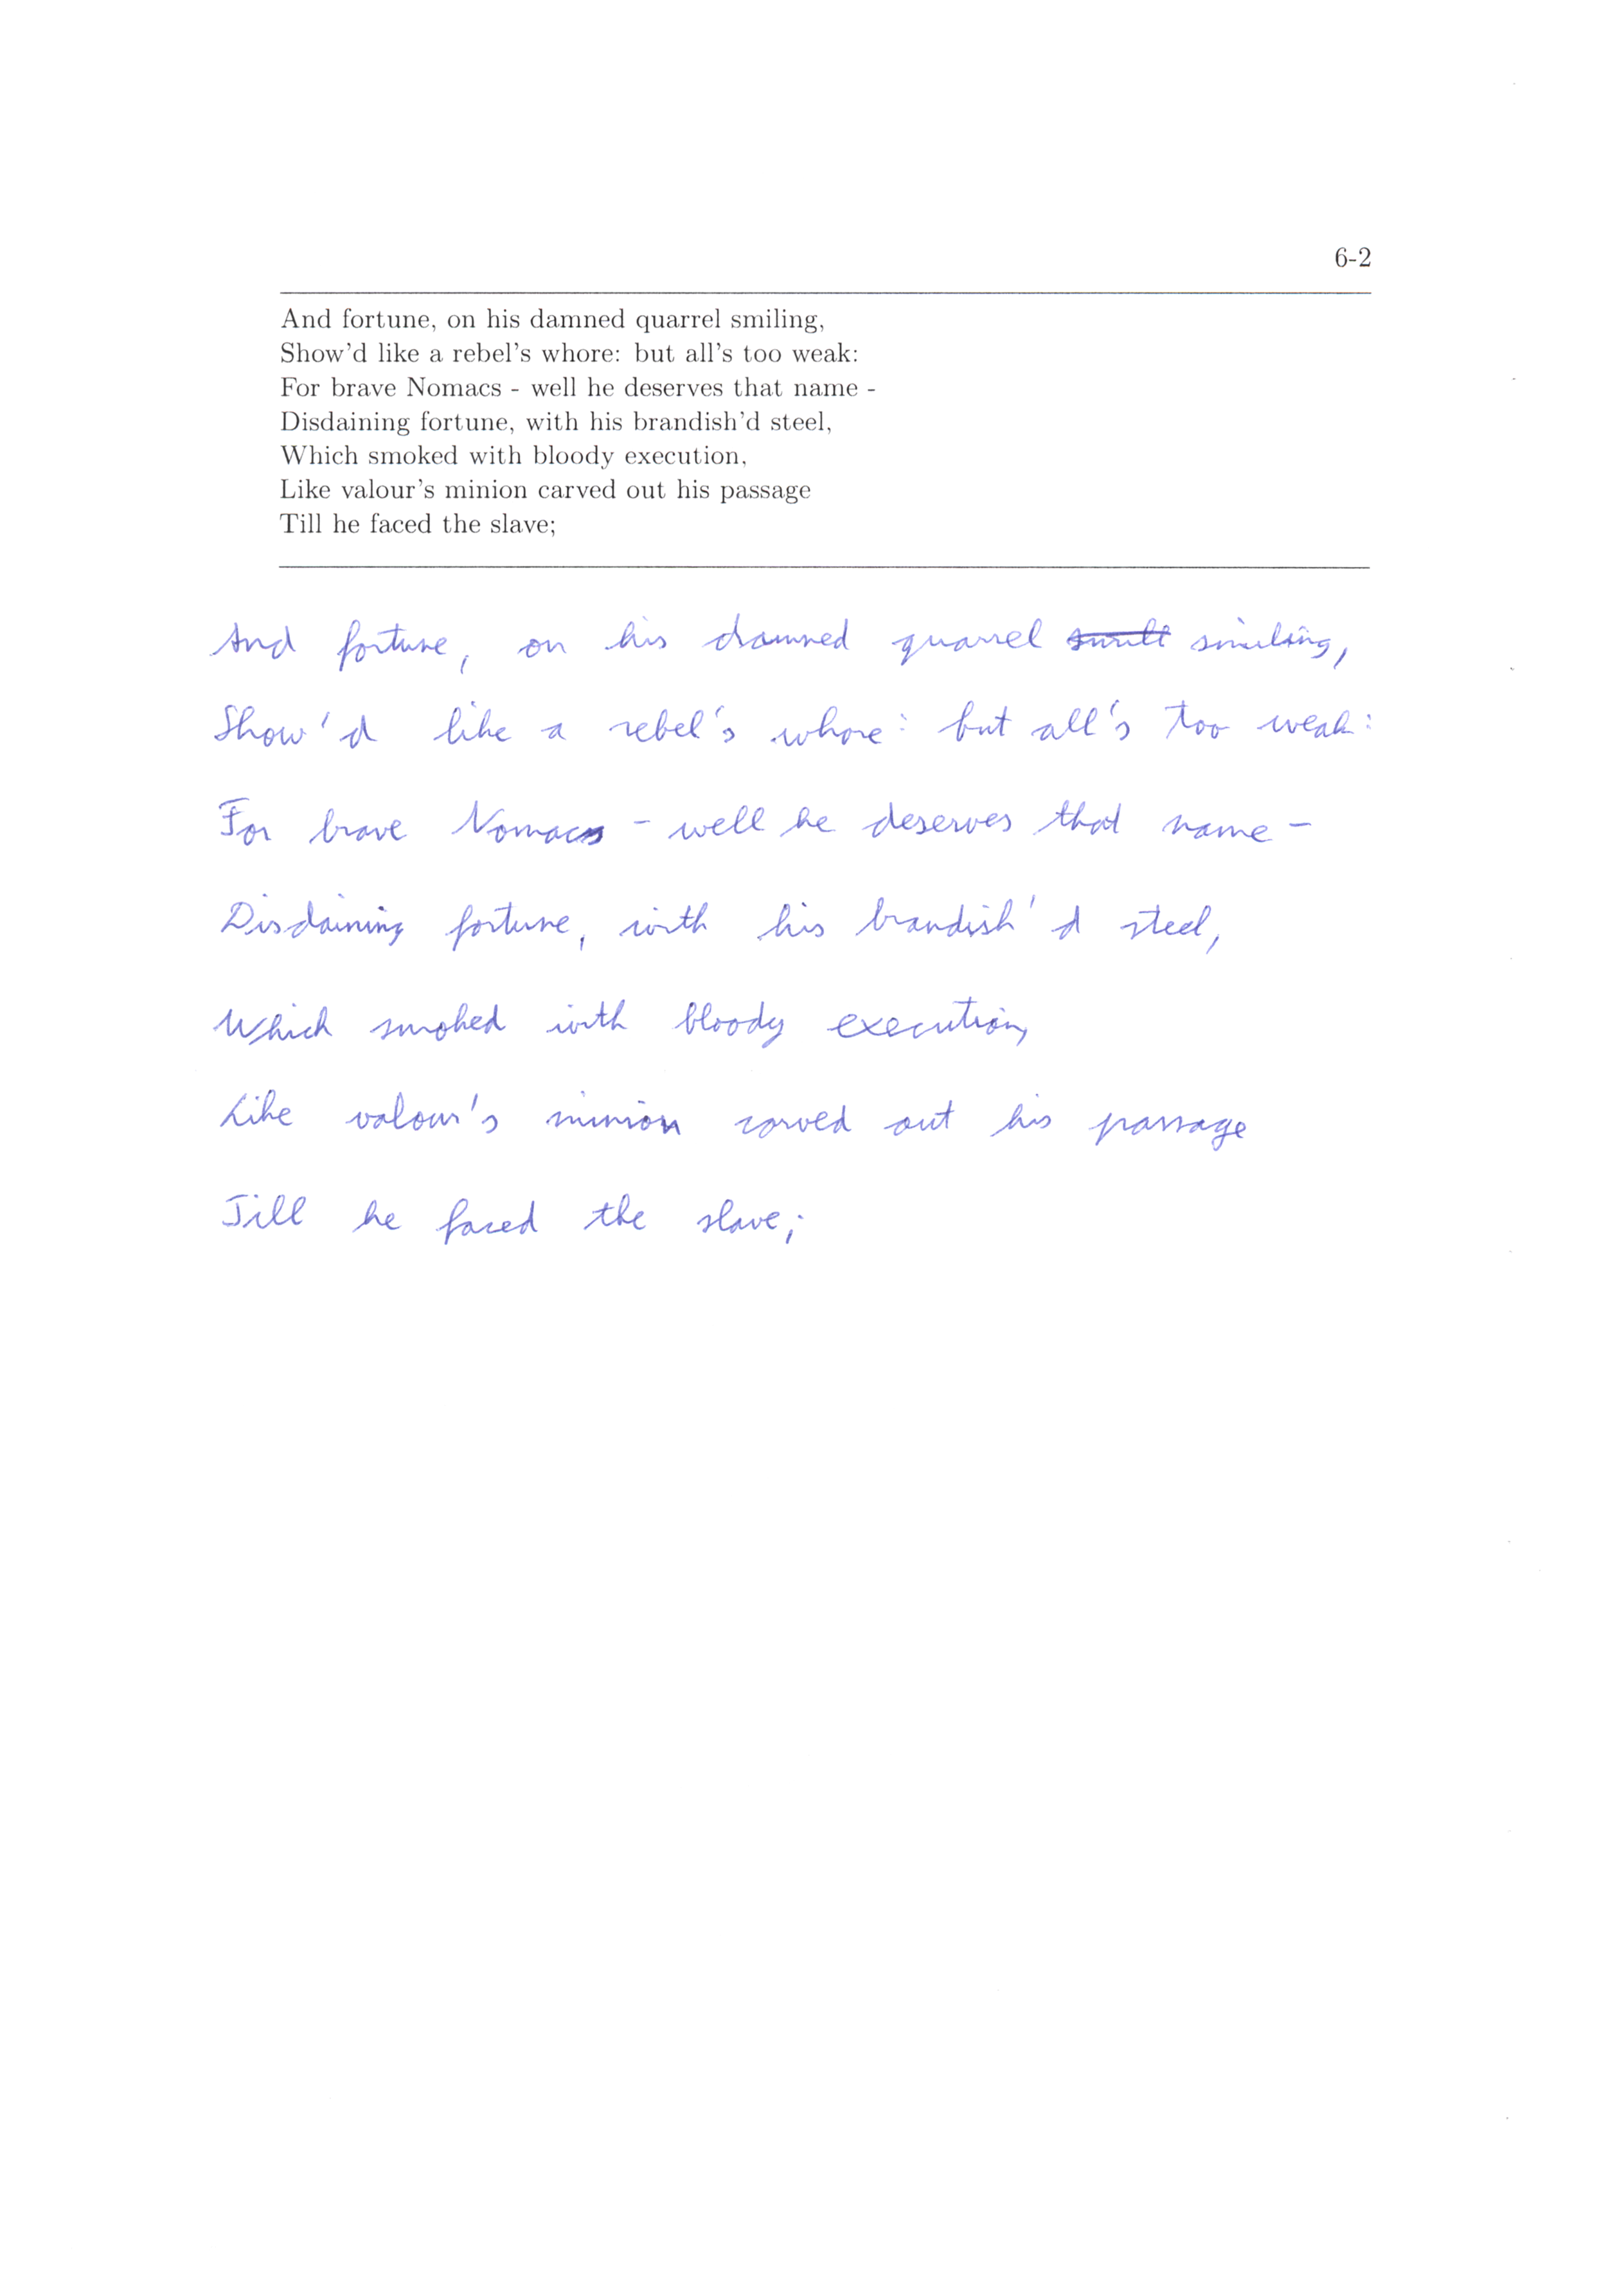 6-2
And fortune, on his damned quarrel smiling,
Show'd like a rebel's whore: but all's too weak:
For brave Nomacs - well he deserves that name -
Disdaining fortune, with his brandish'd steel,
Which smoked with bloody execution,
Like valour's minion carved out his passage
Till he faced the slave;
And fortune, on his damned quarrel smiling,
Show'd like a rebel's whore: but all's too weak:
For brave Nomacs - well he deserves that name -
Disdaining fortune, with his brandish'd steel,
Which smoked with bloody execution,
Like valour's minion carved out his passage
Till he faced the slave;